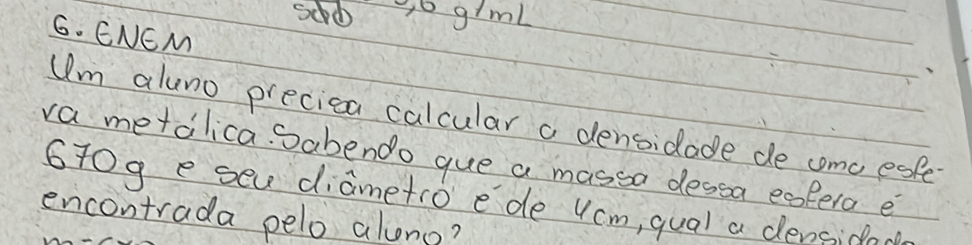 g/mL
6. ENEM
Um aluno precisa calcular a densidade de uma esfe-
ra metálica. Sabendo que a massa dessa esfera é
670g e seu diâmetro é de 4cm, qual a densidade
encontrada pelo aluno?